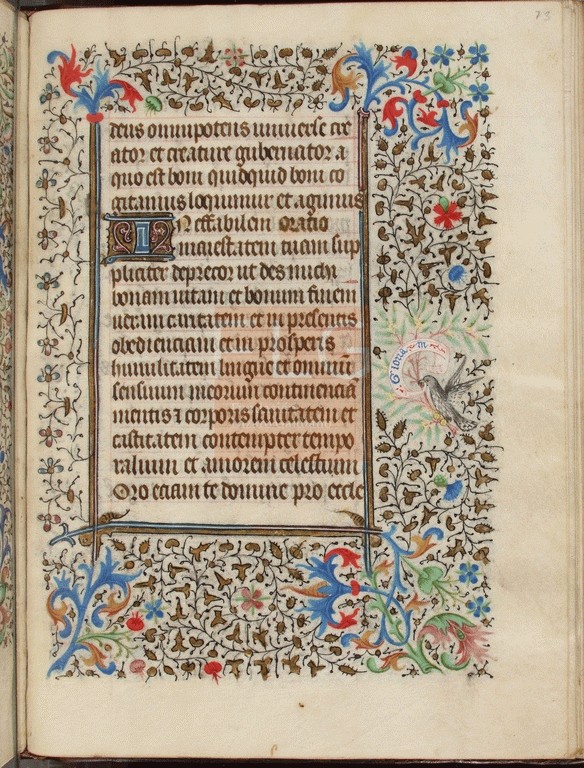 83
deus omnipotens universe cre
ator et creature gubernator a
quo est bom quidquid boni co
gitamus loquimur et agimus
Ineffabilem oratio
maiestatem tuam sup
pliciter deprecor ut des michi
bonam vitam et bonum finem
veram caritatem et in presentis
obedienciam et in prosperis
humilitatem lingue et omniu͂
sensuum meorum continenciā
mentis ⁊ corporis sanitatem et
castitatem contempter tempo
ralium et amorem celestium
Oro eciam te domine pro eccle
Gloria m